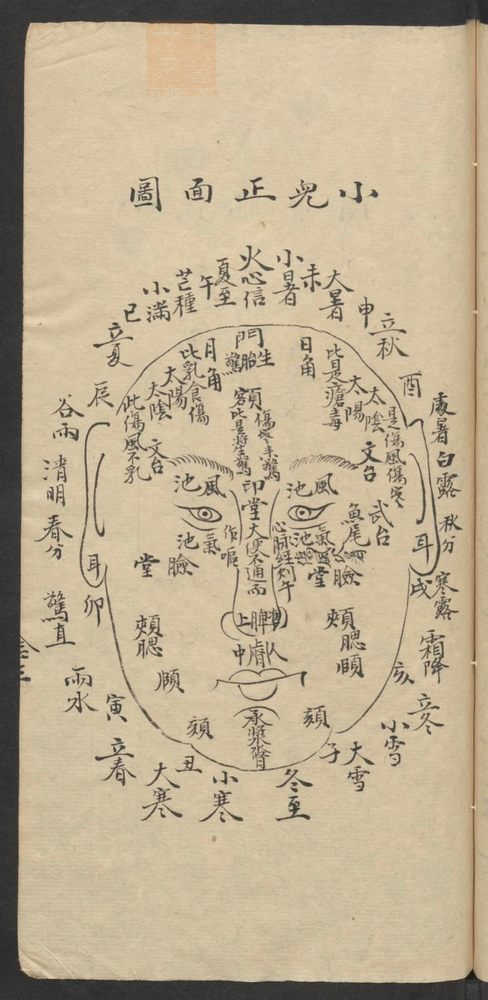 小兒正面圖
火心信
小暑
未
大暑
申
立秋
酉
處暑
白露
秋分
寒露
戌
霜降
亥
立冬
小雪
大雪
子
冬至
小寒
大寒
丑
立春
寅
雨水
驚直
卯
春分
清明
谷雨
辰
立夏
巳
小滿
芒種
午
夏至
門
生胎驚
日角
此是瘡毒
太陽
太陰
是傷風傷寒
文台
武台
魚尾
耳
月角
此乳食傷
太陽
太陰
此傷風不乳
文台
耳
額
印堂
大便不通而
風池
風池
氣池
氣池
作嘔
心脉經刻午
臉堂
臉堂
頰腮
頰腮
頤
頤
人中
承漿
頦
頦